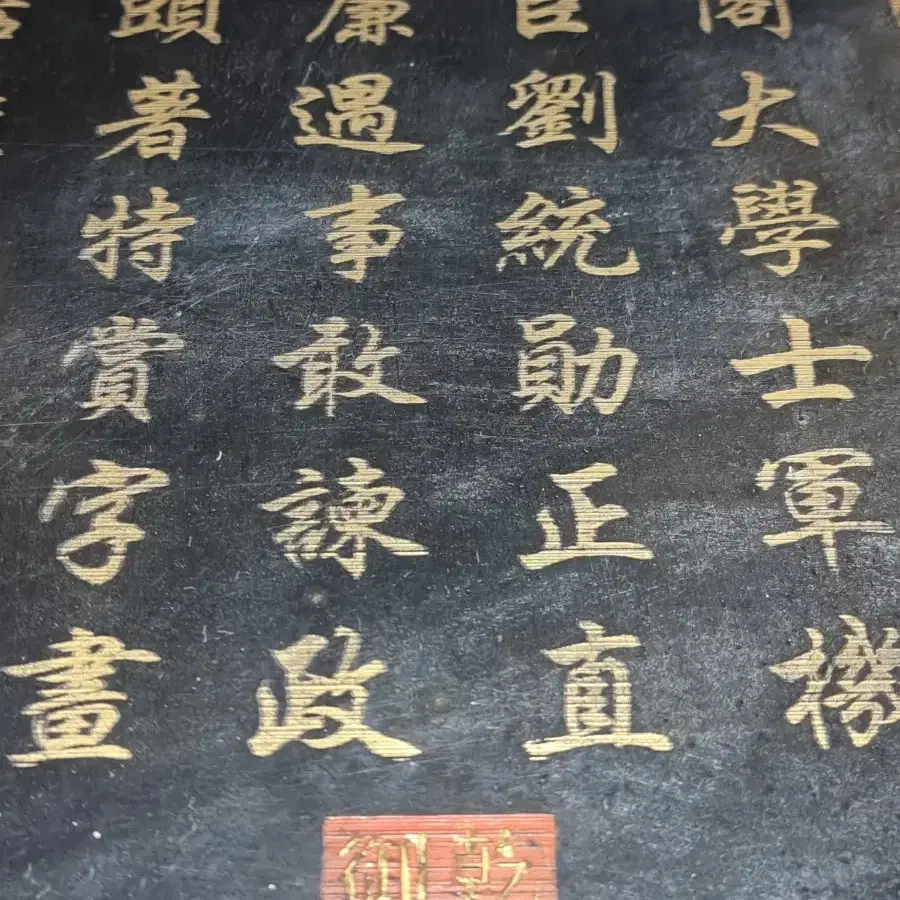 閣大學士軍機
臣劉統勛正直
廉遇事敢諫政
頭著特賞字畫
乾
御